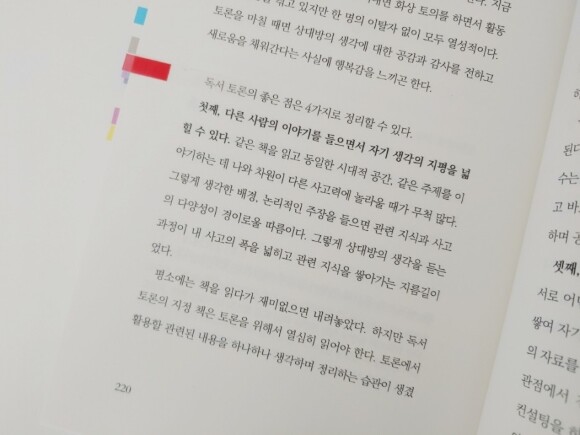 겪고 있지만 한 명의 이탈자 없이 모두 열성적이다.
토론을 마칠 때면 상대방의 생각에 대한 공감과 감사를 전하고
새로움을 채워간다는 사실에 행복감을 느끼곤 한다.
독서 토론의 좋은 점은 4가지로 정리할 수 있다.
첫째, 다른 사람의 이야기를 들으면서 자기 생각의 지평을 넓
힐 수 있다. 같은 책을 읽고 동일한 시대적 공간, 같은 주제를 이
야기하는 데 나와 차원이 다른 사고력에 놀라울 때가 무척 많다.
그렇게 생각한 배경, 논리적인 주장을 들으면 관련 지식과 사고
의 다양성이 경이로울 따름이다. 그렇게 상대방의 생각을 듣는
과정이 내 사고의 폭을 넓히고 관련 지식을 쌓아가는 지름길이
었다.
평소에는 책을 읽다가 재미없으면 내려놓았다. 하지만 독서
토론의 지정 책은 토론을 위해서 열심히 읽어야 한다. 토론에서
활용할 관련된 내용을 하나하나 생각하며 정리하는 습관이 생겼
220
된다
수는
고 바
하며 공
셋째,
서로 어
쌓여 자기
의 자료를
관점에서
컨설팅을